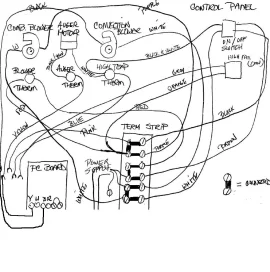 BLACK
PURPLE
CONTROL PANEL
COMB. BLOWER
AUGER
MOTOR
CONVECTION
BLOWER
WHITE
ON / OFF
SWITCH
BLACK & WHITE
HIGH FAN
(LOW)
GRAY
ORANGE
BLOWER
THERM
AUGER
THERM
HIGH TEMP
THERM
RED
RED
YELLOW
BLUE
PINK
TERM STRIP
BLACK
BROWN
PC BOARD
POWER
SUPPLY
WHITE
WHITE